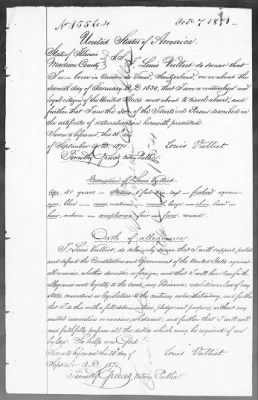 No 15564 Oct 7 1871
United States of America.
State of Illinois
Madison County } SS I, Louis Vulliet do swear that
I was born in Canton Vaud, Switzerland, on or about the
seventh day of January A.D. 1830, that I am a naturalized and
loyal citizen of the United States and about to travel abroad, and
further that I am the person described in
the certificate of naturalization herewith presented
Sworn to before me this
of September A.D. 1871. Louis Vulliet
Notary Public
Description of Louis Vulliet
Age, 41 years – Stature, 5 feet – forehead square
eyes, blue – nose, – mouth, large – chin,
hair, – complexion, fair – face, round
Oath of allegiance
I, Louis Vulliet, do solemnly swear that I will support, protect
and defend the Constitution and Government of the United States against
all enemies, whether domestic or foreign; and that I will bear true faith,
allegiance and loyalty to the same, any ordinance, resolution or law of any
State, convention or legislature to the contrary notwithstanding; and further
that I do this with a full determination, pledge and purpose, without any
mental reservation or evasion whatsoever; and further that I will well
and faithfully perform all the duties which may be required of me
by law. So help me God!
Sworn to before me this day of Louis Vulliet
September A.D. 1871
Notary Public